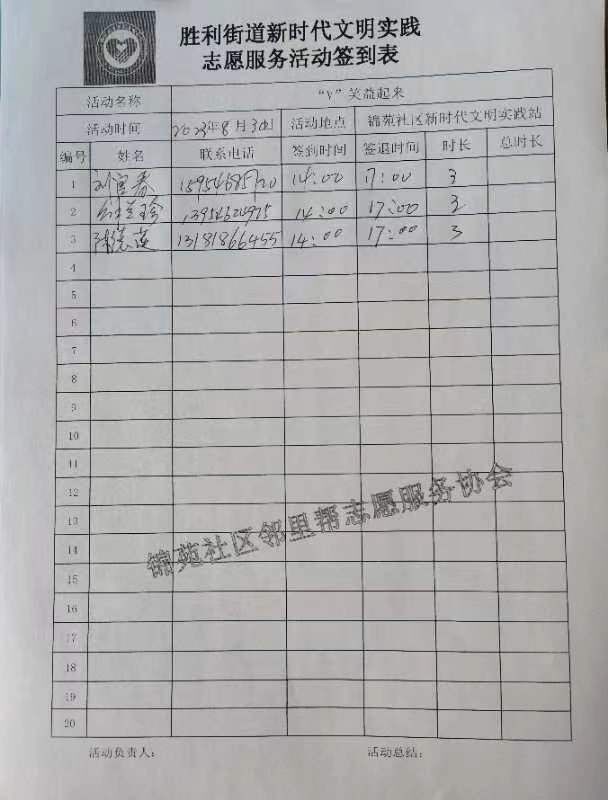 胜利街道新时代文明实践
志愿服务活动签到表
活动名称 “V”笑益起来
活动时间 2023年8月30日 活动地点 锦苑社区新时代文明实践站
编号 姓名 联系电话 签到时间 签退时间 时长 总时长
1 14:00 17:00 3
2 14:00 17:00 3
3 13181866455 14:00 17:00 3
4
5
6
7
8
9
10
11
12
13
锦苑社区邻里帮志愿服务协会
14
15
16
17
18
19
20
活动负责人: 活动总结: